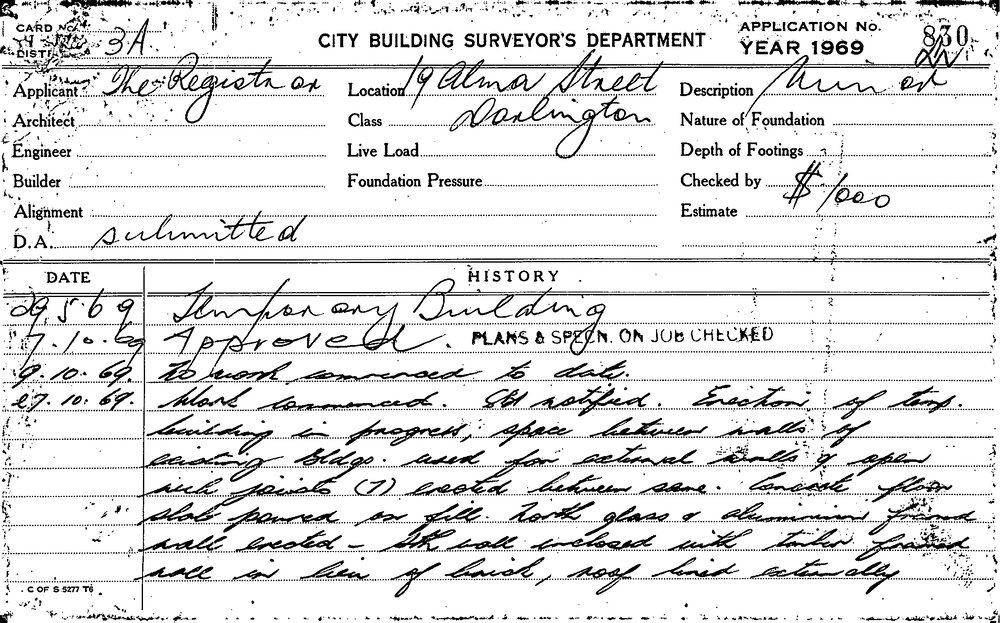 CARD No.
DIST. 3A
CITY BUILDING SURVEYOR'S DEPARTMENT
APPLICATION No. 830
YEAR 1969
Applicant The Registrar
Location 19 Alma Street
Description Minor
Architect
Class Darlington
Nature of Foundation
Engineer
Live Load
Depth of Footings
Builder
Foundation Pressure
Checked by
Alignment
Estimate $1000
D.A. submitted
DATE
HISTORY
29.5.69 Temporary Building
7.10.69 Approved. PLANS & SPECN. ON JOB CHECKED
9.10.69. No work commenced to date.
27.10.69. Work commenced. notified. Erection of temp.
building in progress, space between walls of
existing Bldgs. used for external walls & open
joists (7) erected between same. Concrete floor
slab poured on fill. North glass & aluminium framed
wall erected - Sth wall enclosed with timber framed
wall in lieu of brick, roof lined externally
C OF S 5277 T6